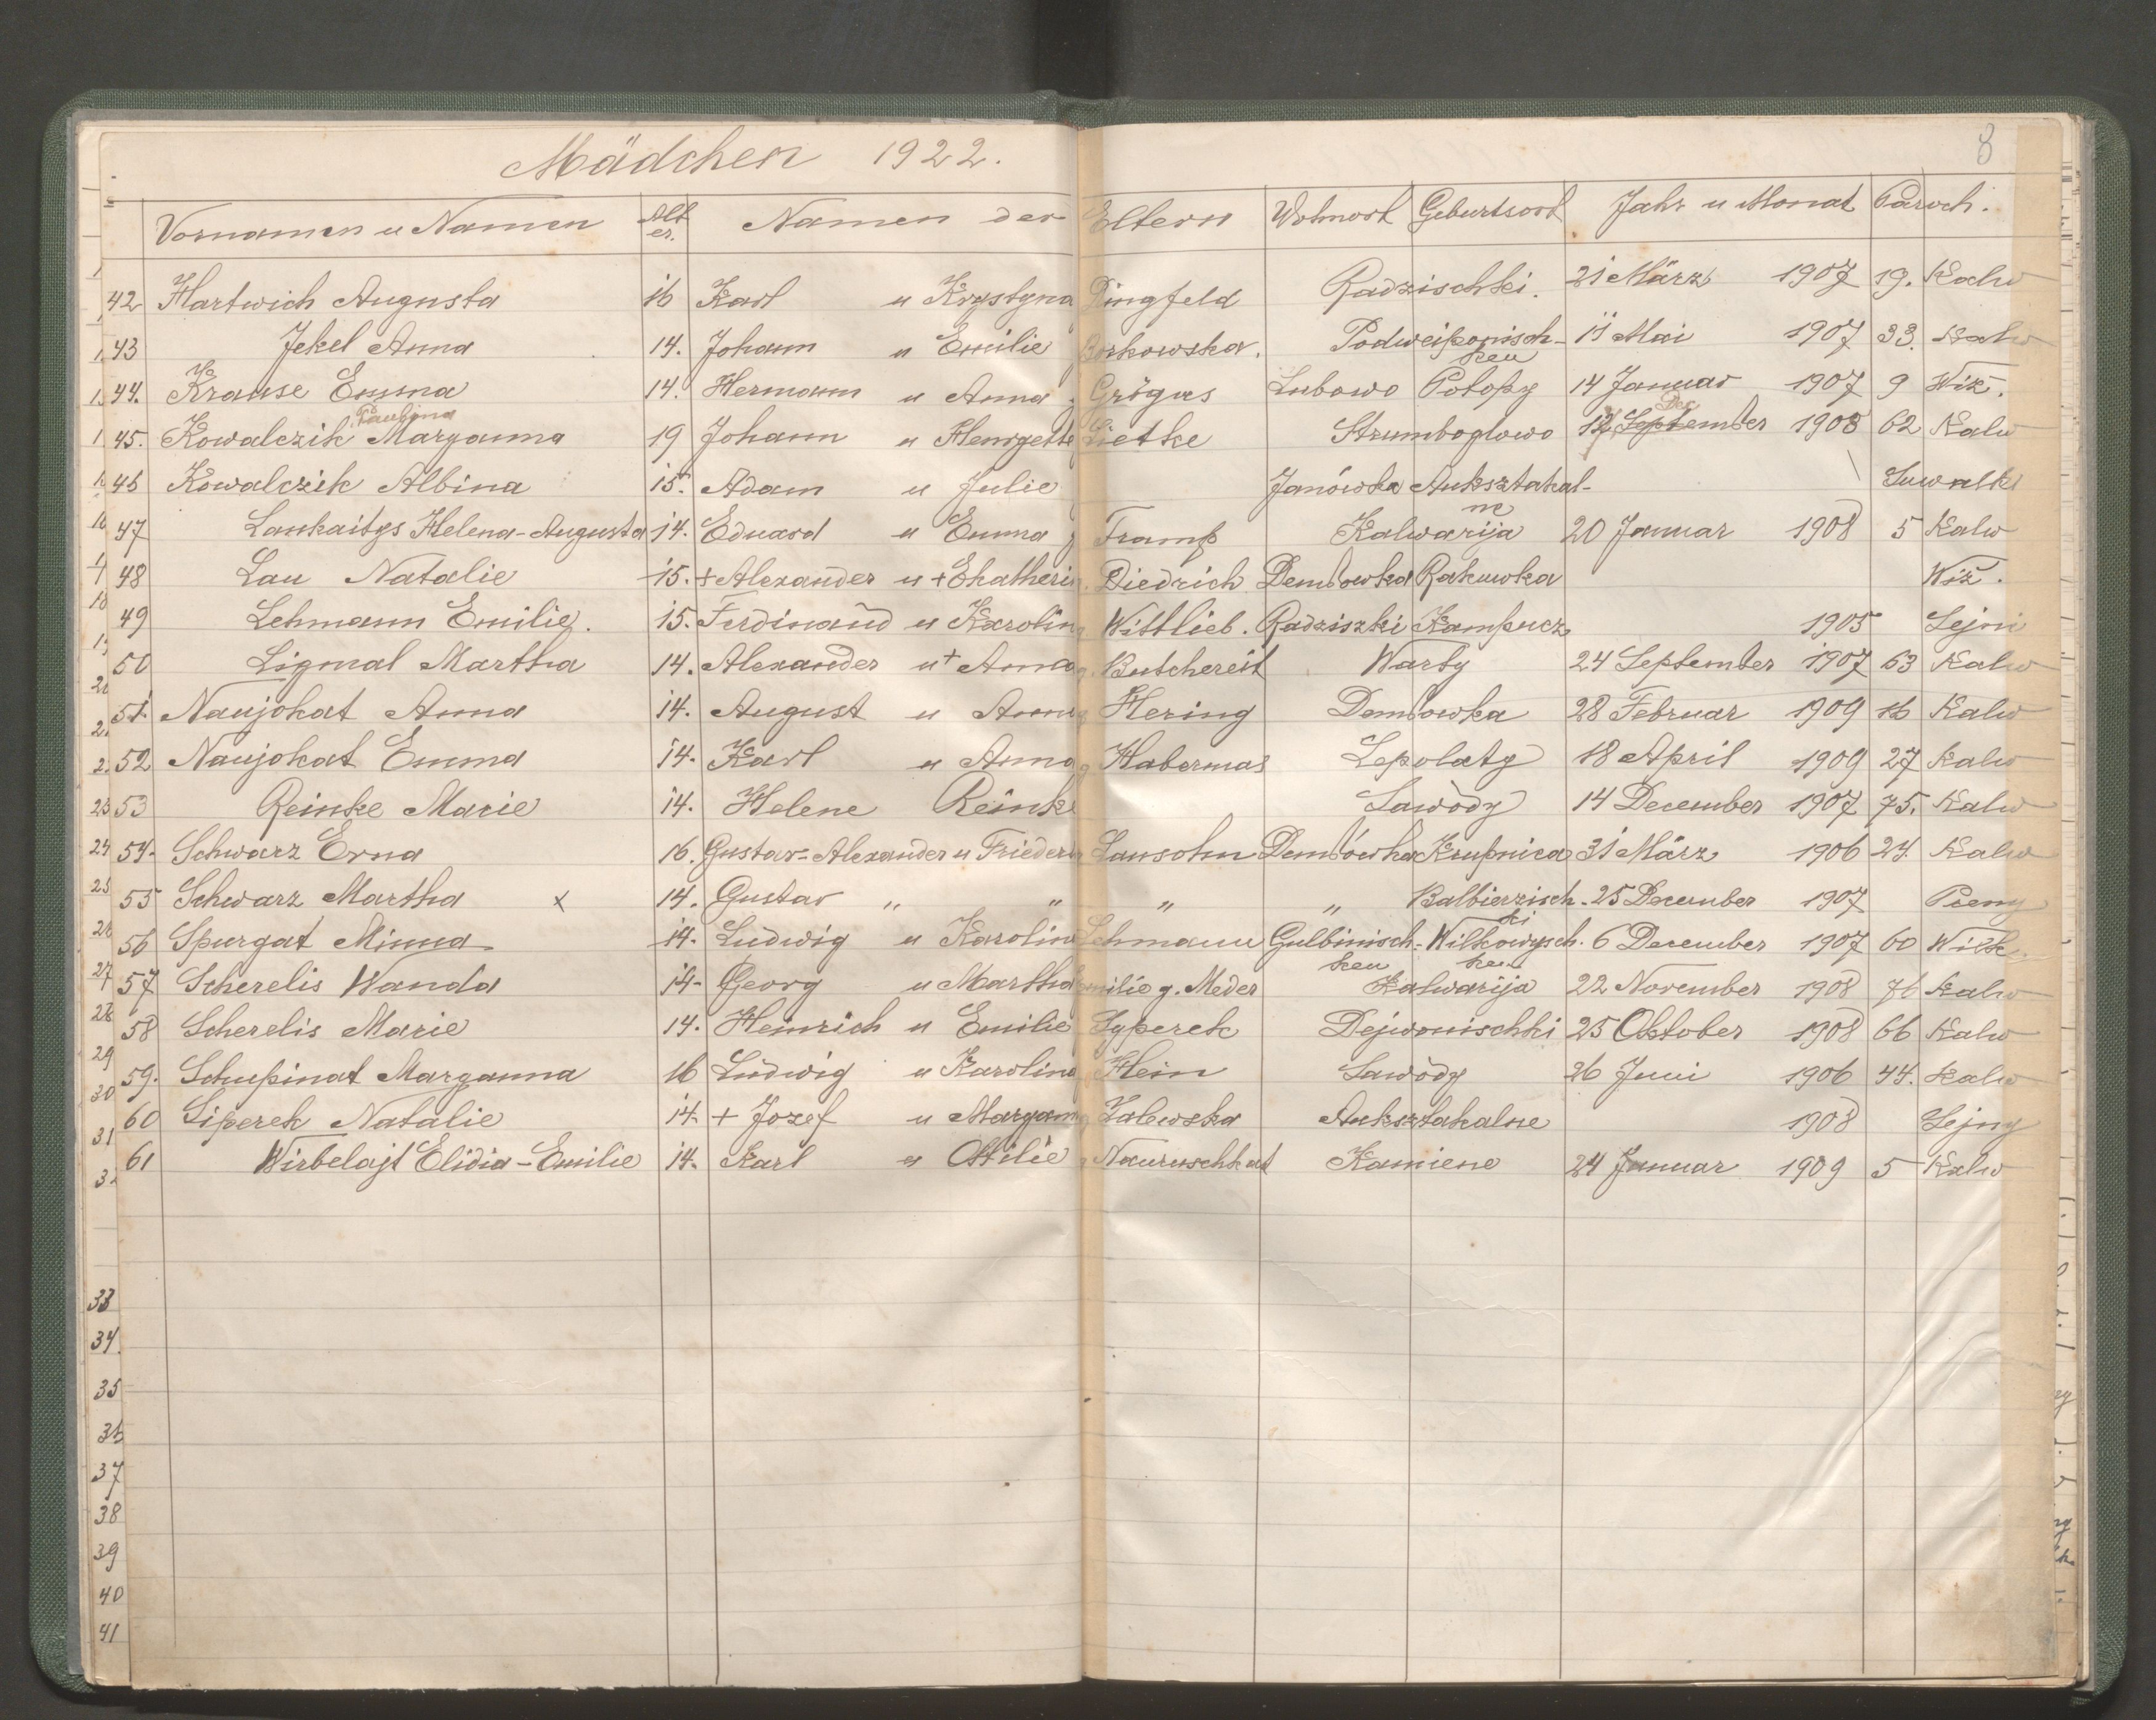 Mädchen 1922. 8
Vornamen u Namen Alter. Namen der Eltern Wohnort Geburtsort Jahr u Monat Paroch.
42 Hartwich Augusta 16 Karl u Krystyna Dingfeld Radzischki. 21 März 1907 19. Kalw
43 Jekel Anna 14. Johann u Emilie Borkowska. Podweiponisch- 11 Mai 1907 33. Kalw
ken
44. Krause Emma 14. Hermann u Anna Grögus Lubowo Potopy 14 Januar 1907 9 Wiż.
Paulina Dec
45. Kowalczik Maryanna 19 Johann u Henryette Lietke Strumboglowo 12 September 1908 62 Kalw
46 Kowalczik Albina 15. Adam u Julie Janówka Auksztakal- Suwalki
ne
47 Lankaitys Helena-Augusta 14. Eduard u Emma g Tramp Kalwarija 20 Januar 1908 5 Kalw
48 Lau Natalie 15. + Alexander u + Ekatherin g. Diedrich Dembowka Rakuwka Wiż.
49 Lehmann Emilie. 15. Ferdinand u Karolin g Wittlieb. Radziszki Kampucz 1905 Sejni
50 Ligmal Martha 14. Alexander u + Anna g. Butchereit Warty 24 September 1907 63 Kalw
51. Naujokat Anna 14. August u Anna g Hering Dembowka 28 Februar 1909 16 Kalw
52 Naujokat Emma 14. Karl u Anna g Habermas Lepolaty 18 April 1909 27 Kalw
53 Reinke Marie 14. Helene Reinke Sawòdy 14 December 1907 75. Kalw
54. Schwarz Erna 16. Gustav-Alexander u Friederi g Lansohn Dembówka Krupnica 31 März 1906 24. Kalw
55 Schwarz Martha x 14. Gustav " " " " Balbierzisch- 25 December 1907 Preny
ki
56 Spurgat Minna 14. Ludwig u Karoline Lehmann Gulbinisch- Wilkowysch. 6 December 1907 60 Wilk.
ken ken
57 Scherelis Wanda 14- Georg u Martha Emilie g. Meder Kalwarija 22 November 1908 76 Kalw
58 Scherelis Marie 14. Heinrich u Emilie Syperek Dejwonischki 25 Oktober 1908 66 Kalw
59. Schupinat Maryanna 16 Ludwig u Karolina Hein Sawòdy 26 Juni 1906 44. Kalw
60 Siperek Natalie 14. + Jozef u Maryann g Zalewska Auksztakalne 1908 Sejny
61 Wirbelajt Elidia-Emilie 14. Karl u Ottilie g Nauruschkat Kamiene 24 Januar 1909 5 Kalw
23
24
25
26
27
28
29
30
31
33
34
35
36
37
38
39
40
41